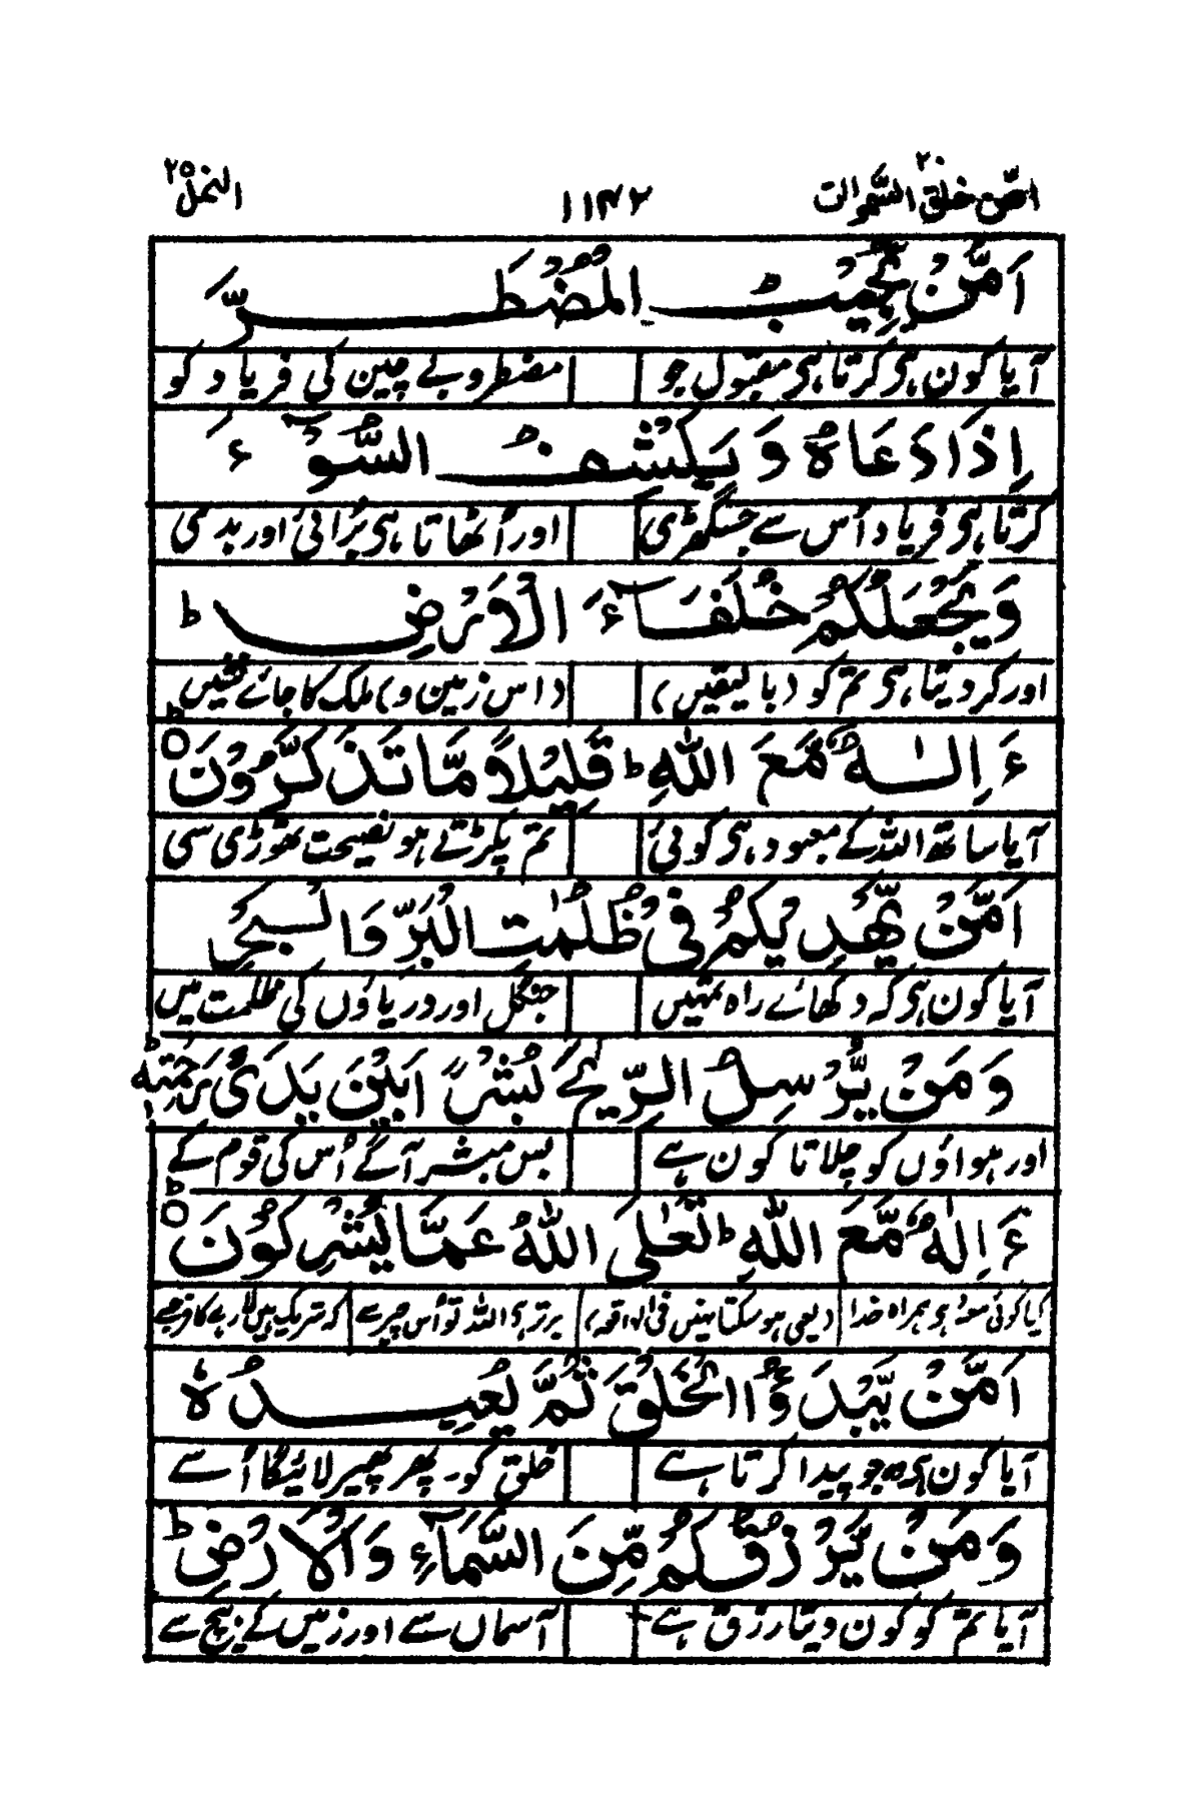 امّن خلق السّمٰوات ۲۰ ۱۱۴۲ النمل ۲۵
اَمَّنْ يُّجِيْبُ الْمُضْطَرَّ
آیا کون ہی کرتا ہی مقبول جو مضطر و بے چین کی فریاد کو
اِذَا دَعَاهُ وَ يَكْشِفُ السُّوْٓءَ
کرتا ہی فریاد اُس سے جس گھڑی اور اُٹھاتا ہی بُرائی اور بدی
وَيَجْعَلُكُمْ خُلَفَآءَ الْاَرْضِ ط
اور کر دیتا ہی تم کو (با لیقیں) (اس زمین و) ملک کا جانشیں
ءَاِلٰهٌ مَّعَ اللّٰهِ ط قَلِيْلًا مَّا تَذَكَّرُوْنَ ○ط
آیا ساتھ اللہ کے معبود ہی کوئی تم پکڑتے ہو نصیحت تھوڑی سی
اَمَّنْ يَّهْدِيْكُمْ فِيْ ظُلُمٰتِ الْبَرِّ وَالْبَحْرِ
آیا کون ہی کہ دکھائے راہ تمہیں جنگل اور دریاؤں کی ظلمت میں
وَ مَنْ يُّرْسِلُ الرِّيٰحَ بُشْرًۢا بَيْنَ يَدَيْ رَحْمَتِهٖ ط
اور ہواؤں کو چلاتا کون ہے بس مبشر آگے اُس کی قوم کے
ءَاِلٰهٌ مَّعَ اللّٰهِ ط تَعٰلَى اللّٰهُ عَمَّا يُشْرِكُوْنَ ○ط
کیا کوئی ہمراہ خدا (یعنی ہو سکتا نہیں فی الواقعہ) برتر ہی اللہ تو اُس چیز سے کہ شریک
اَمَّنْ يَّبْدَؤُا الْخَلْقَ ثُمَّ يُعِيْدُهٗ
آیا کون ہی وہ جو پیدا کرتا ہے خلق کو۔ پھر پھیر لائیگا اُسے
وَ مَنْ يَّرْزُقُكُمْ مِّنَ السَّمَآءِ وَالْاَرْضِ ط
آیا تم کو کون دیتا رزق ہے آسماں سے اور زمیں کے بیچ سے